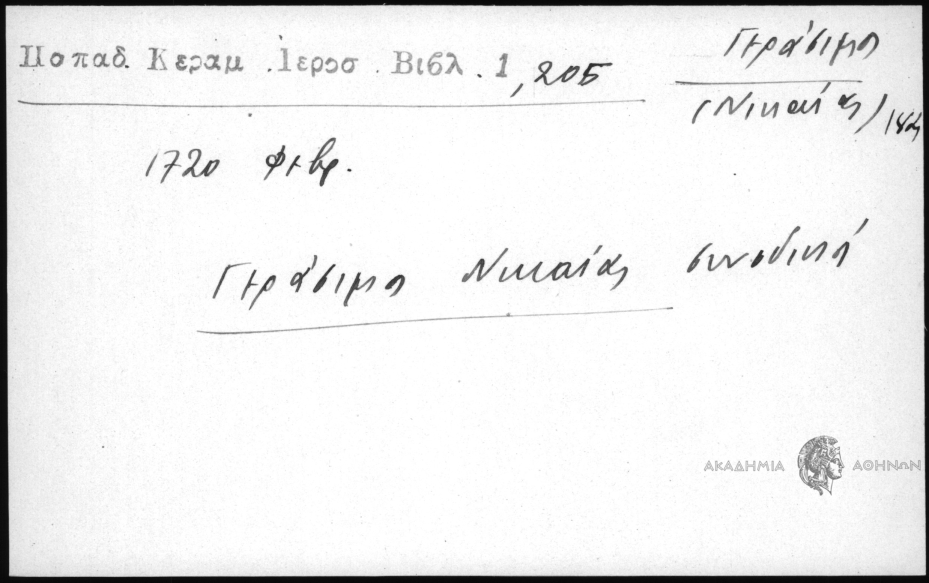 Παπαδ. Κεραμ. Ιεροσ. Βιβλ. 1, 205
Γεράσιμος
(Νικαίας)
1720 Φεβρ.
Γεράσιμος Νικαίας συνοδικά
ΑΚΑΔΗΜΙΑ ΑΘΗΝΩΝ